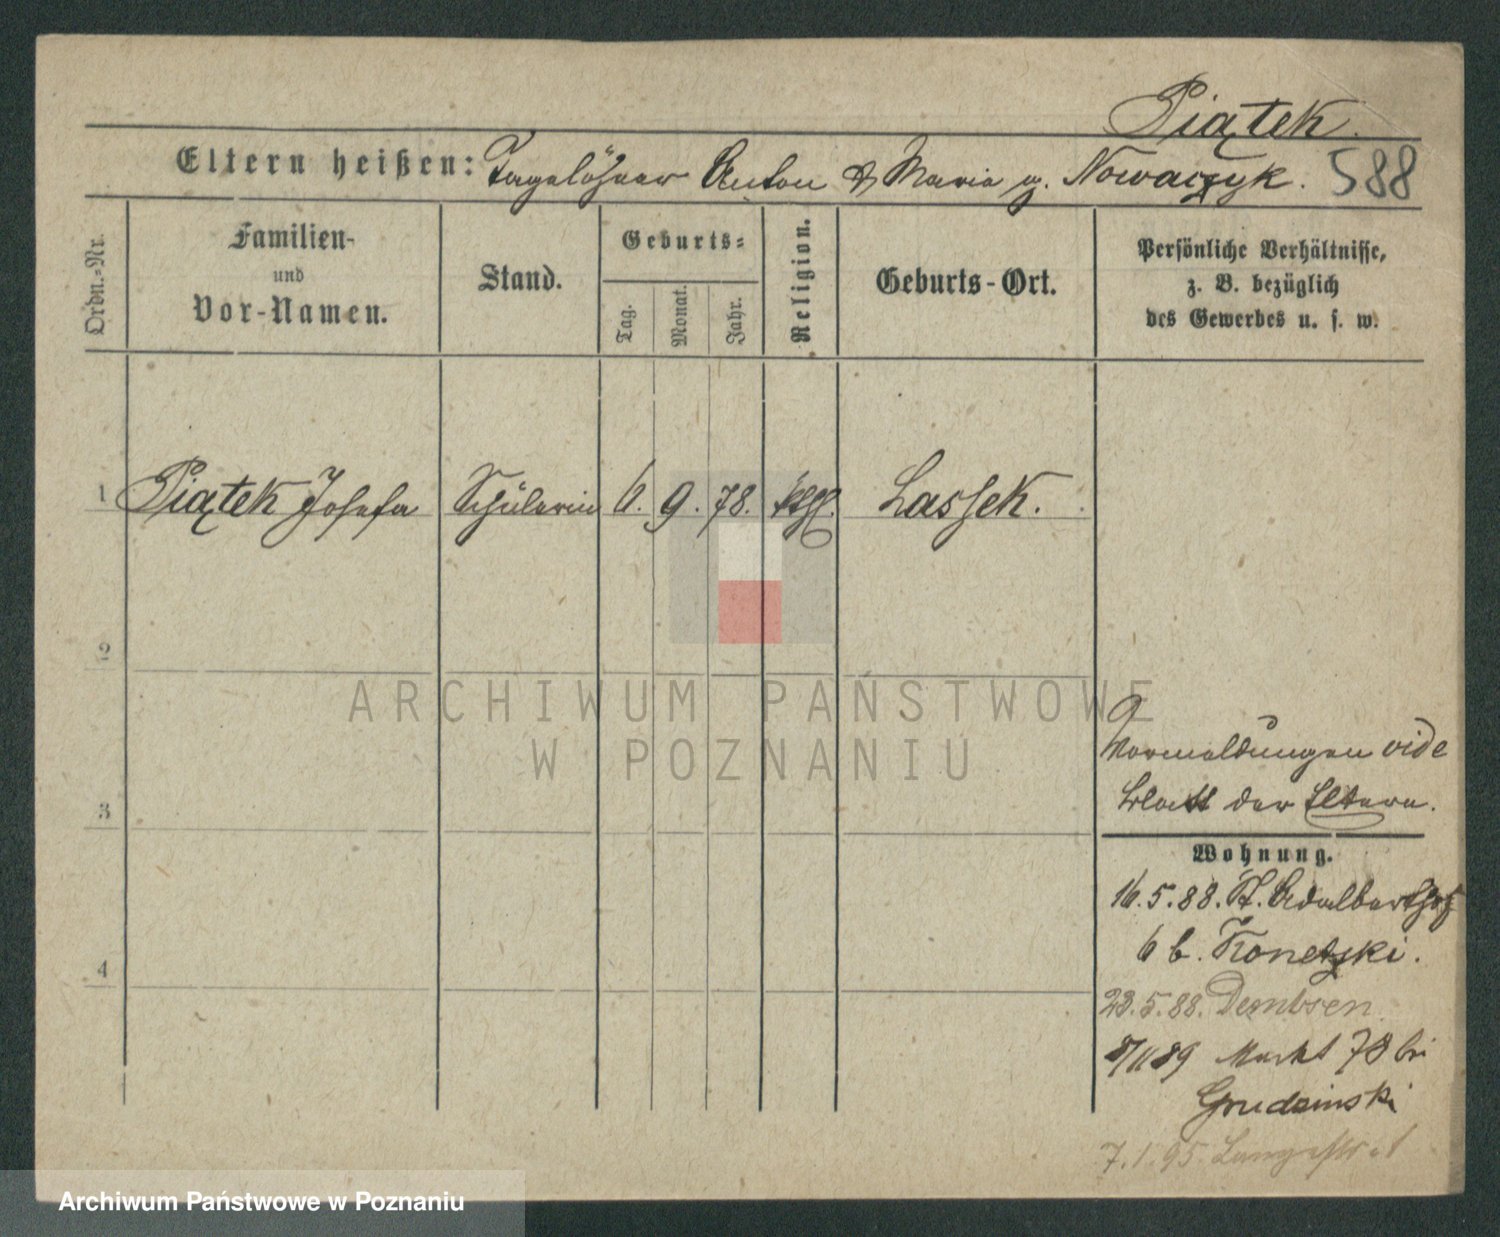 Piątek.
Eltern heißen: Tagelöhner Anton & Maria g. Nowaczyk. 588
Ordn.-Nr.
Familien-
und
Vor-Namen.
Stand.
Geburts-
Tag.
Monat.
Jahr.
Religion.
Geburts-Ort.
Persönliche Verhältnisse,
z. B. bezüglich
des Gewerbes u. s. w.
1 Piątek Josefa Schülerin 6. 9. 78. kthl. Lassek.
2
ARCHIWUM PAŃSTWOWE
W POZNANIU
Vermeldungen vide
3
Blatt der Eltern.
Wohnung.
16.5.88. St. Adalbertstr
6 b. Konetzki.
4
23.5.88. Dembsen
8/11 89 Markt 78 bei
Grudzinski
7.1.95.
Archiwum Państwowe w Poznaniu